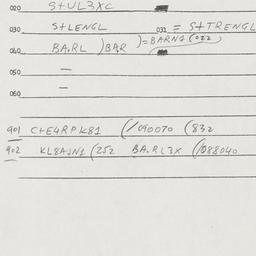 020 S+UL3XC
030 S+LENGL 031 = S+TRENGL
040 BA.RL )BAR )=BARN1(022
050 —
060 —
901 C+E4RPK81 (/090070 (832
902 KL8AJN1(252 BA.RL3X (/088040